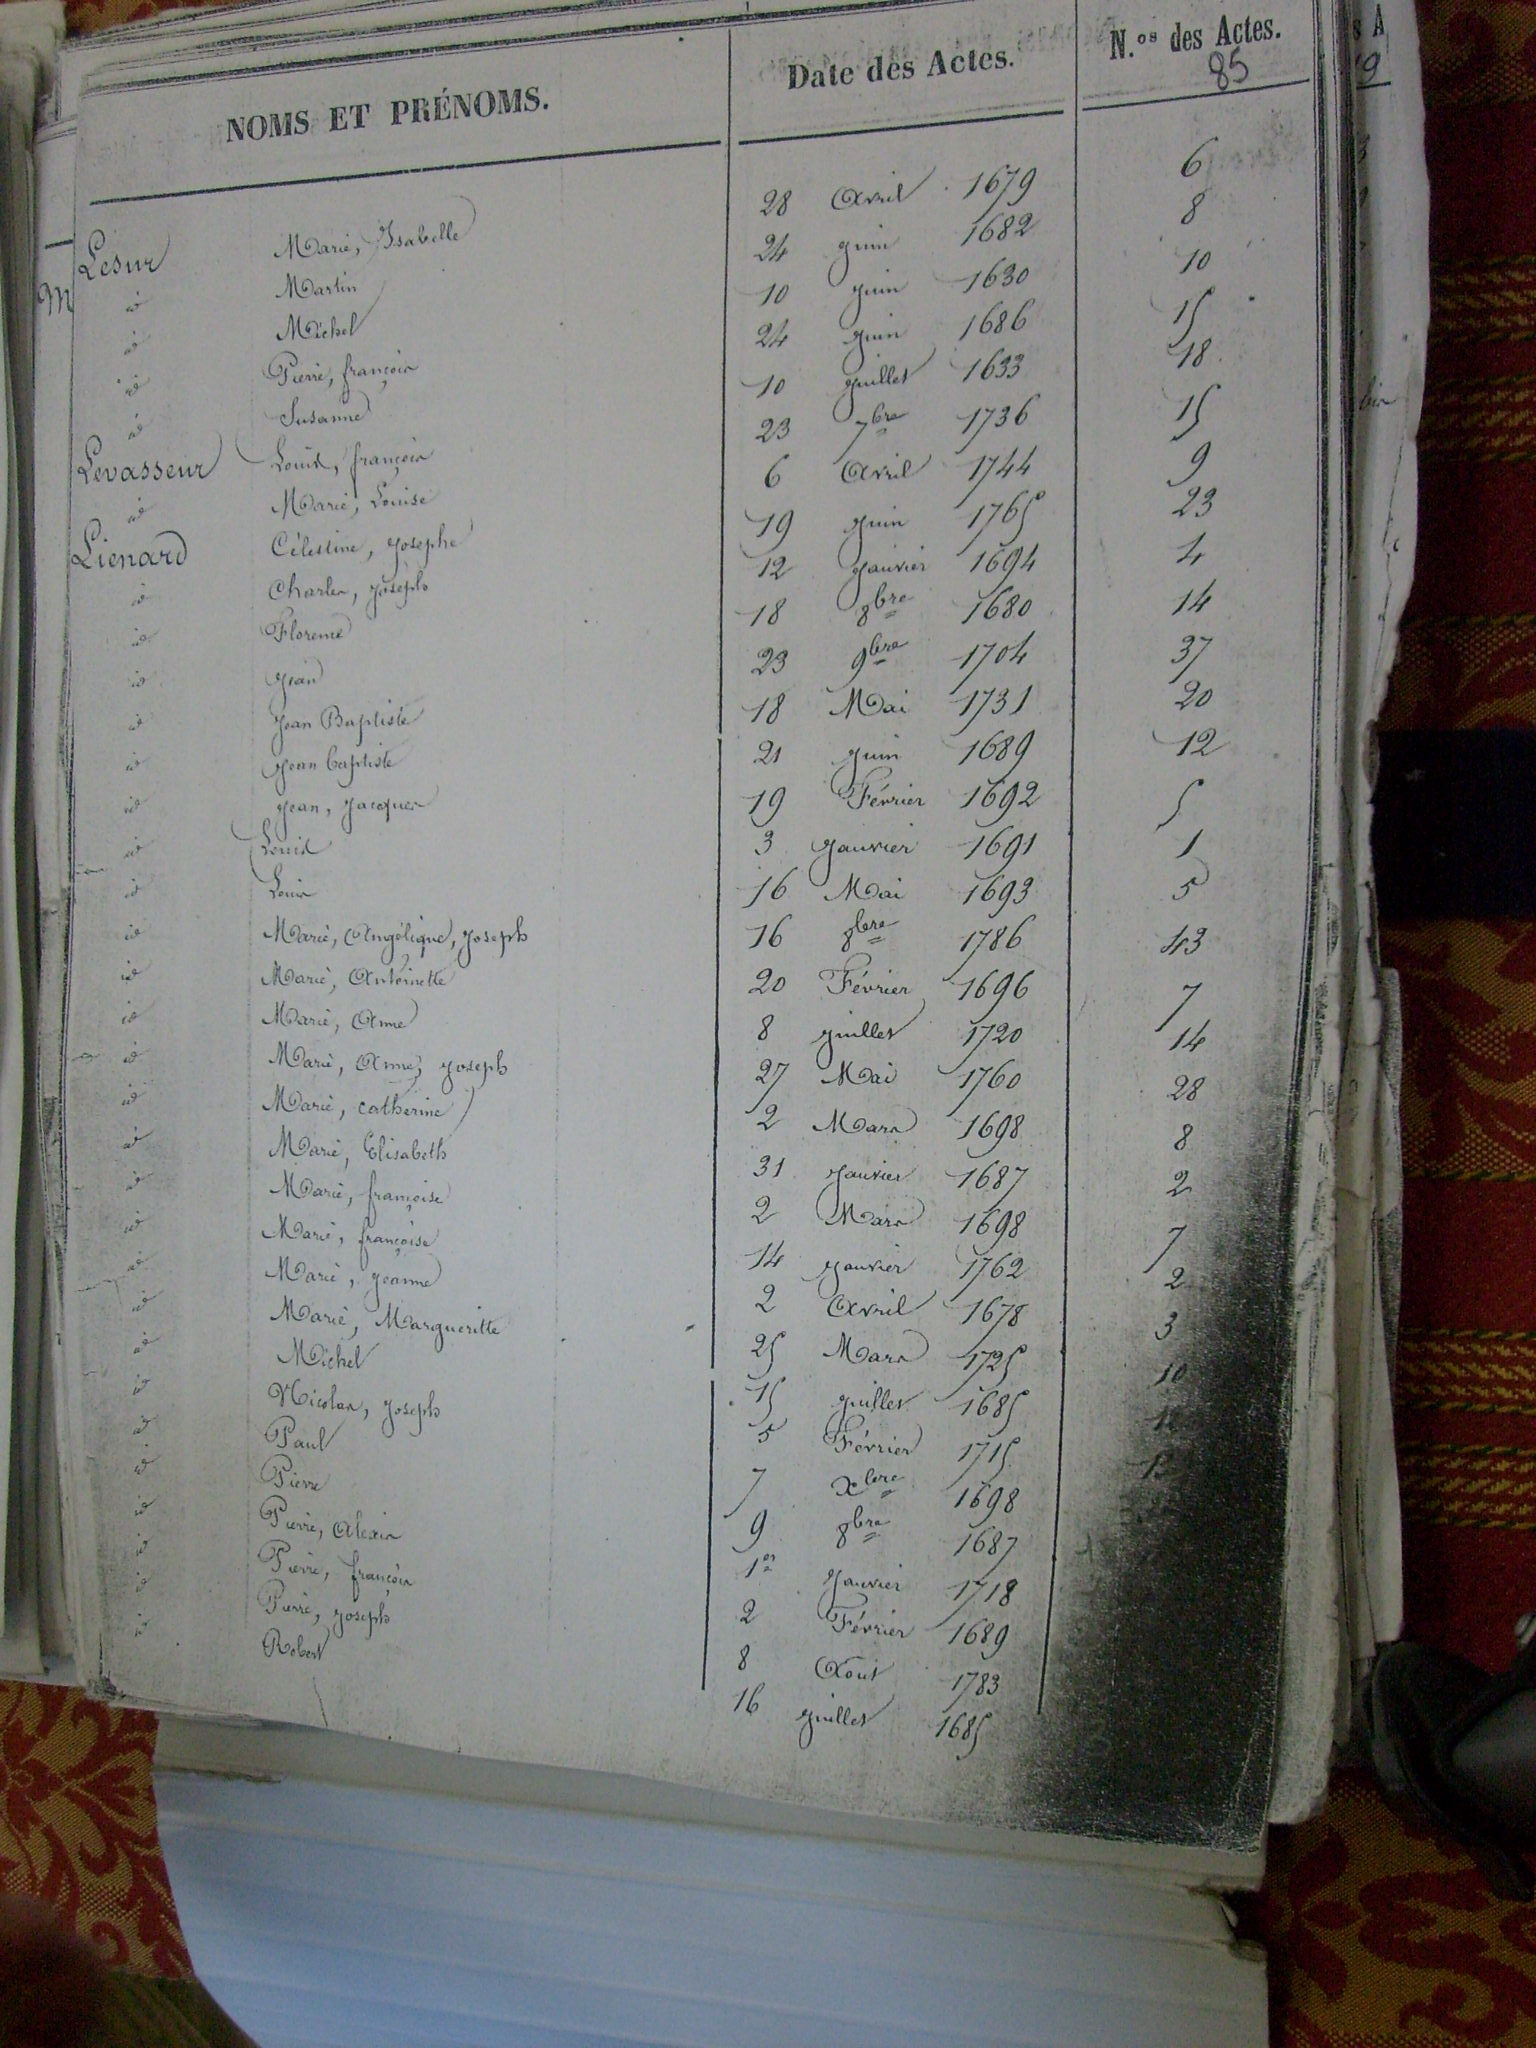 NOMS ET PRÉNOMS. Date des Actes. N.os des Actes.
85
Lesur Marie, Isabelle 28 Avril 1679 6
id Martin 24 Juin 1682 8
id Michel 10 Juin 1630 10
id Pierre, françois 24 Juin 1686 15
id Susanne 10 Juillet 1633 18
Levasseur Louis, françois 23 7bre 1736 15
id Marie, Louise 6 Avril 1744 9
Lienard Célestine, Josephe 19 Juin 1765 23
id Charles, Joseph 12 Janvier 1694 4
id Florence 18 8bre 1680 14
id Jean 23 9bre 1704 37
id Jean Baptiste 18 Mai 1731 20
id Jean baptiste 21 Juin 1689 12
id Jean, Jacques 19 Février 1692 5
id Louis 3 Janvier 1691 1
id Louis 16 Mai 1693 5
id Marie, Angélique, Joseph 16 8bre 1786 43
id Marie, Antoinette 20 Février 1696 7
id Marie, Anne 8 Juillet 1720 14
id Marie, Anne, Joseph 27 Mai 1760 28
id Marie, catherine 2 Mars 1698 8
id Marie, Elisabeth 31 Janvier 1687 2
id Marie, françoise 2 Mars 1698 7
id Marie, françoise 14 Janvier 1762 2
id Marie, Jeanne 2 Avril 1678 3
id Marie, Margueritte 25 Mars 1725 10
id Michel 15 Juillet 1685
id Nicolas, Joseph 5 Février 1715
id Paul 7 Xbre 1698
id Pierre 9 8bre 1687
id Pierre, Alexis 1er Janvier 1718
id Pierre, françois 2 Février 1689
id Pierre, Joseph 8 Aout 1783
id Robert 16 Juillet 1685